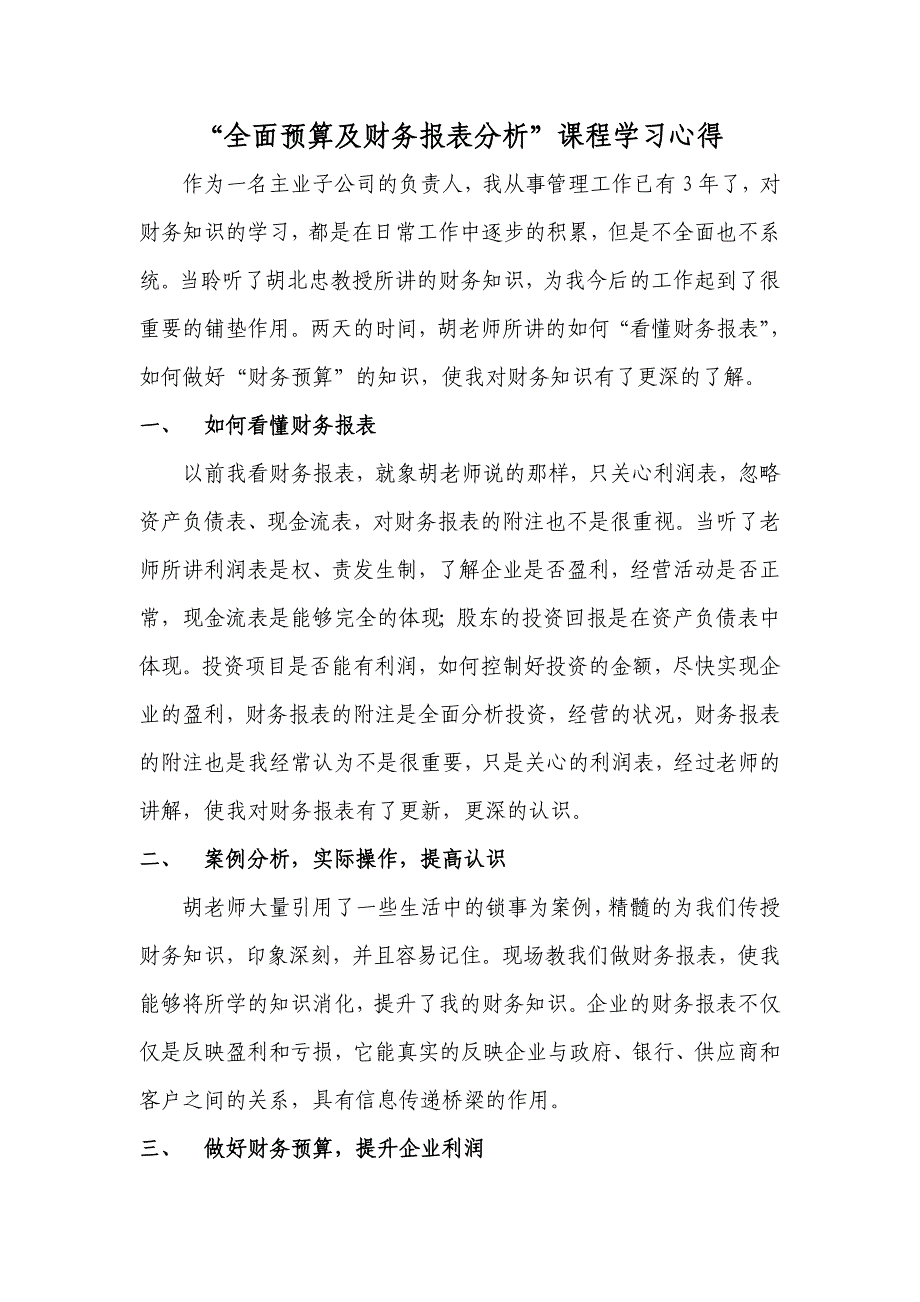 “全面预算及财务报表分析”课程学习心得
作为一名主业子公司的负责人，我从事管理工作已有 3 年了，对
财务知识的学习，都是在日常工作中逐步的积累，但是不全面也不系
统。当聆听了胡北忠教授所讲的财务知识，为我今后的工作起到了很
重要的铺垫作用。两天的时间，胡老师所讲的如何“看懂财务报表”，
如何做好“财务预算”的知识，使我对财务知识有了更深的了解。
一、 如何看懂财务报表
以前我看财务报表，就象胡老师说的那样，只关心利润表，忽略
资产负债表、现金流表，对财务报表的附注也不是很重视。当听了老
师所讲利润表是权、责发生制，了解企业是否盈利，经营活动是否正
常，现金流表是能够完全的体现；股东的投资回报是在资产负债表中
体现。投资项目是否能有利润，如何控制好投资的金额，尽快实现企
业的盈利，财务报表的附注是全面分析投资，经营的状况，财务报表
的附注也是我经常认为不是很重要，只是关心的利润表，经过老师的
讲解，使我对财务报表有了更新，更深的认识。
二、 案例分析，实际操作，提高认识
胡老师大量引用了一些生活中的锁事为案例，精髓的为我们传授
财务知识，印象深刻，并且容易记住。现场教我们做财务报表，使我
能够将所学的知识消化，提升了我的财务知识。企业的财务报表不仅
仅是反映盈利和亏损，它能真实的反映企业与政府、银行、供应商和
客户之间的关系，具有信息传递桥梁的作用。
三、 做好财务预算，提升企业利润